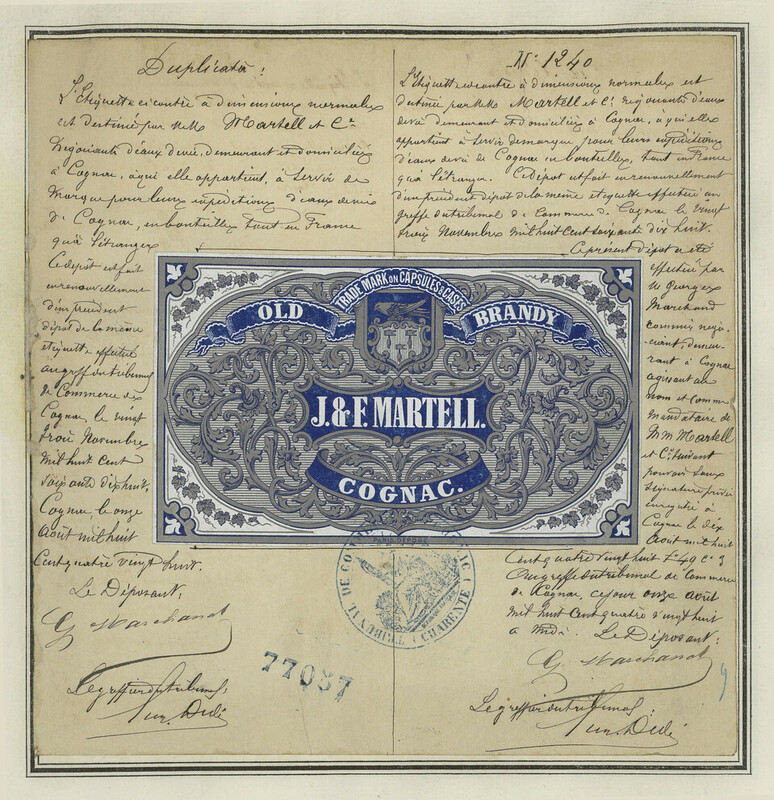 Duplicata :
L'Etiquette ci contre à dimensions normales
est destinée par MM. Martell et Cie
Négociants d'eaux de vie, demeurant et domiciliés
à Cognac, à qui elle appartient, à servir de
Marque pour leurs expéditions d'eaux de vie
de Cognac, en bouteilles tant en France
qu'à l'étranger
Ce dépôt est fait
en renouvellement
d'un précédent
dépôt de la même
étiquette effectué
au greffe du tribunal
de Commerce de
Cognac, le vingt
trois Novembre
mil huit cent
soixante dix huit.
Cognac, le onze
Août mil huit
Cent quatre vingt huit.
Le Déposant;
G. Marchand
Le greffier du tribunal;
No 1240
L'Etiquette ci contre à dimensions normales est
destinée par MM. Martell et Cie négociants d'eaux
de vie demeurant et domiciliés à Cognac, à qui elle
appartient à servir de marque pour leurs expéditions
d'eaux de vie de Cognac en bouteilles, tant en France
qu'à l'étranger. Ce dépôt est fait en renouvellement
d'un précédent dépôt de la même étiquette effectué au
greffe du tribunal de Commerce de Cognac le vingt
trois Novembre mil huit cent soixante dix huit.
Ce présent dépôt a été
effectué par
M Georges
Marchand
commis négo-
ciant, demeu-
rant à Cognac
agissant au
nom et comme
mandataire de
MM Martell
et Cie suivant
pouvoir sous
signature privée
enregistré à
Cognac le dix
Août mil huit
Cent quatre vingt huit fo 49 co 3
Au greffe du tribunal de Commerce
de Cognac, ce jour onze août
mil huit cent quatre vingt huit
à midi. Le Déposant:
G. Marchand
Le greffier du tribunal;
TRADE MARK ON CAPSULES & CASES
OLD BRANDY
J. & F. MARTELL.
COGNAC.
PARIS DÉPOSÉ
TRIBUNAL DE COMMERCE
CHARENTE
77087